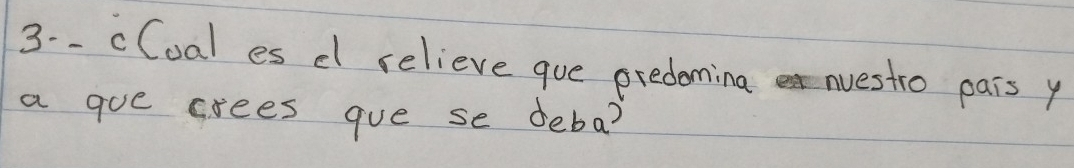 3.- ¿Cual es el relieve que predomina en nuestro país y
a que crees que se deba?